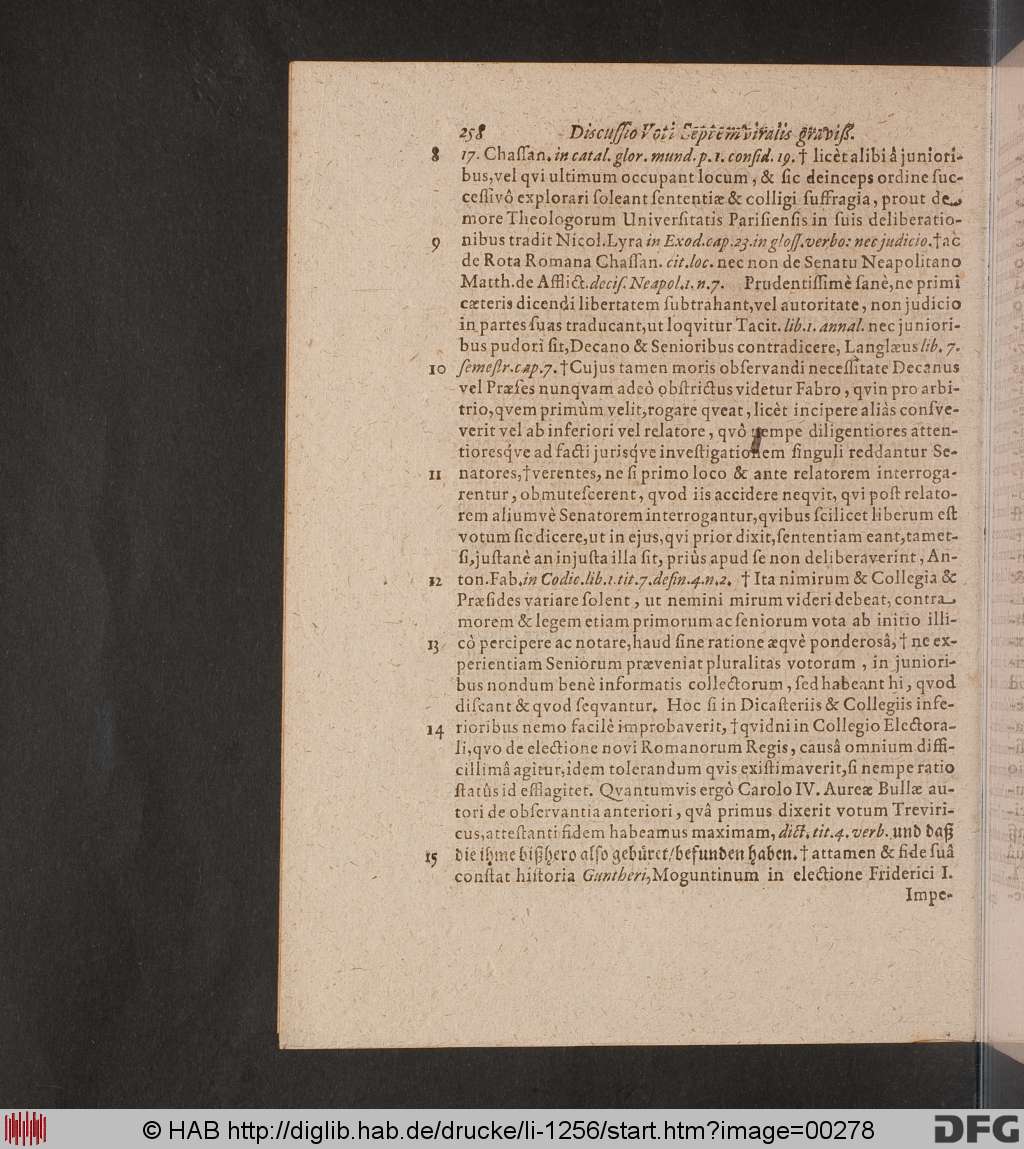 258 Discussio Voti Septemviralis graviß.
8 17. Chaſſan. in catal. glor. mund. p. 1. conſid. 19. † licèt alibi â juniori-
bus, vel qvi ultimum occupant locum, & ſic deinceps ordine ſuc-
ceſſivô explorari ſoleant ſententiæ & colligi ſuffragia, prout de
more Theologorum Univerſitatis Pariſienſis in ſuis deliberatio-
9 nibus tradit Nicol. Lyra in Exod. cap. 23. in gloſſ. verbo: nec judicio. † ac
de Rota Romana Chaſſan. cit. loc. nec non de Senatu Neapolitano
Matth. de Afflict. deciſ. Neapol. 1. n. 7. Prudentiſſimè ſanè, ne primi
cæteris dicendi libertatem ſubtrahant, vel autoritate, non judicio
in partes ſuas traducant, ut loqvitur Tacit. lib. 1. annal. nec juniori-
bus pudori ſit, Decano & Senioribus contradicere, Langlæus lib. 7.
10 ſemeſtr. cap. 7. † Cujus tamen moris obſervandi neceſſitate Decanus
vel Præſes nunqvam adeò obſtrictus videtur Fabro, qvin pro arbi-
trio, qvem primùm velit, rogare qveat, licèt incipere aliàs conſve-
verit vel ab inferiori vel relatore, qvô nempe diligentiores atten-
tioresq́ve ad facti jurisq́ve inveſtigationem ſinguli reddantur Se-
11 natores, † verentes, ne ſi primo loco & ante relatorem interroga-
rentur, obmuteſcerent, qvod iis accidere neqvit, qvi poſt relato-
rem aliumvè Senatorem interrogantur, qvibus ſcilicet liberum eſt
votum ſic dicere, ut in ejus, qvi prior dixit, ſententiam eant, tamet-
ſi, juſtanè an injuſta illa ſit, priùs apud ſe non deliberaverint, An-
12 ton. Fab. in Codic. lib. 1. tit. 7. defin. 4. n. 2. † Ita nimirum & Collegia &
Præſides variare ſolent, ut nemini mirum videri debeat, contra
morem & legem etiam primorum ac ſeniorum vota ab initio illi-
13 cò percipere ac notare, haud ſine ratione æqvè ponderosâ, † ne ex-
perientiam Seniorum præveniat pluralitas votorum, in juniori-
bus nondum benè informatis collectorum, ſed habeant hi, qvod
diſcant & qvod ſeqvantur. Hoc ſi in Dicaſteriis & Collegiis infe-
14 rioribus nemo facilè improbaverit, † qvidni in Collegio Electora-
li, qvo de electione novi Romanorum Regis, causâ omnium diffi-
cillimâ agitur, idem tolerandum qvis exiſtimaverit, ſi nempe ratio
ſtatûs id efflagitet. Qvantumvis ergò Carolo IV. Aureæ Bullæ au-
tori de obſervantia anteriori, qvâ primus dixerit votum Treviri-
cus, atteſtanti fidem habeamus maximam, dict. tit. 4. verb. und daß
15 die ihme bißhero alſo gebüret / befunden haben. † attamen & fide ſuâ
conſtat hiſtoria Guntheri, Moguntinum in electione Friderici I.
Impe-
© HAB http://diglib.hab.de/drucke/li-1256/start.htm?image=00278
DFG